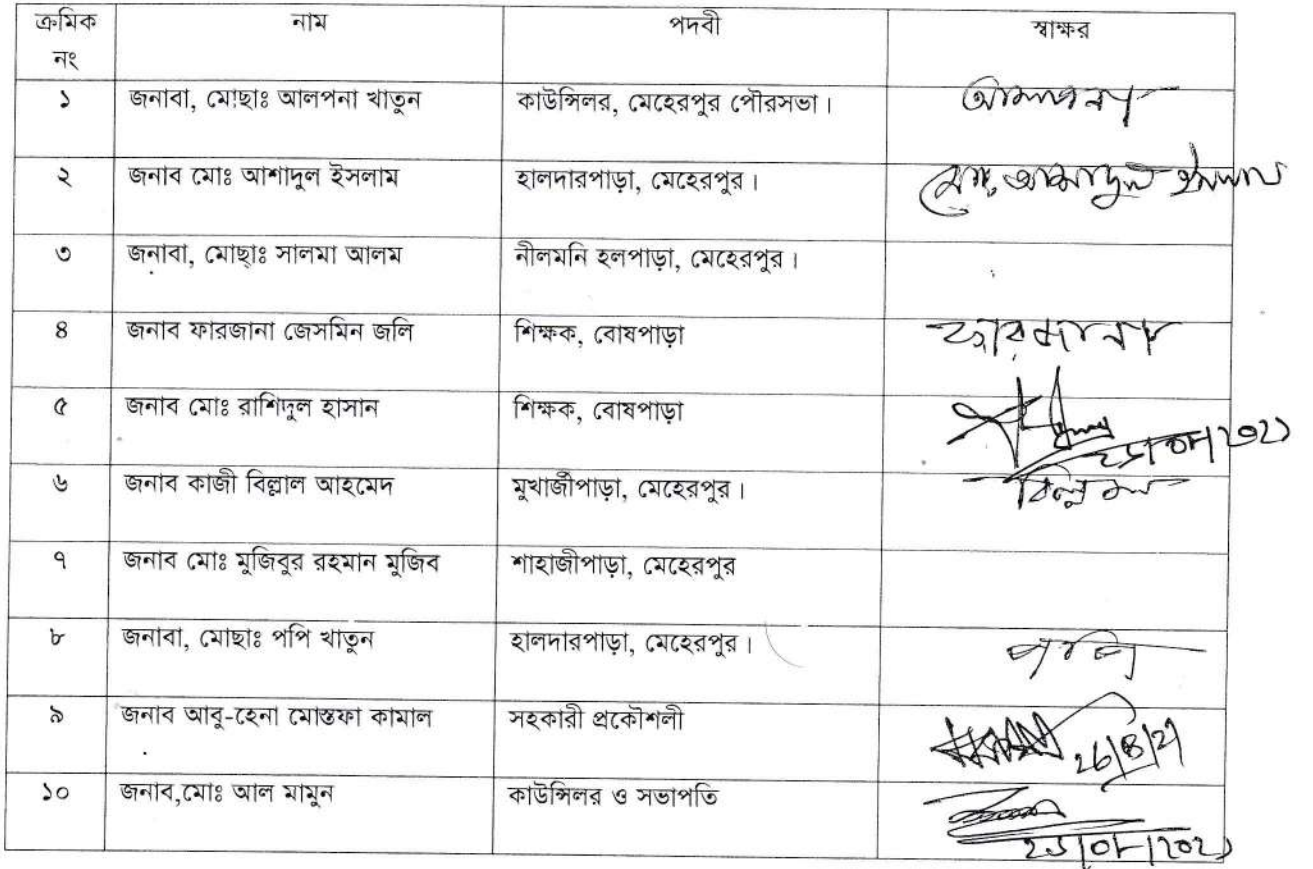 ক্রমিক নং নাম পদবী স্বাক্ষর
১ জনাবা, মোছাঃ আলপনা খাতুন কাউন্সিলর, মেহেরপুর পৌরসভা। আলপনা
২ জনাব মোঃ আশাদুল ইসলাম হালদারপাড়া, মেহেরপুর। মোঃ আশাদুল ইসলাম
৩ জনাবা, মোছাঃ সালমা আলম নীলমনি হলপাড়া, মেহেরপুর।
৪ জনাব ফারজানা জেসমিন জলি শিক্ষক, বোষপাড়া ফারজানা
৫ জনাব মোঃ রাশিদুল হাসান শিক্ষক, বোষপাড়া
৬ জনাব কাজী বিল্লাল আহমেদ মুখার্জীপাড়া, মেহেরপুর। বিল্লাল
৭ জনাব মোঃ মুজিবুর রহমান মুজিব শাহাজীপাড়া, মেহেরপুর
৮ জনাবা, মোছাঃ পপি খাতুন হালদারপাড়া, মেহেরপুর। পপি
৯ জনাব আবু-হেনা মোস্তফা কামাল সহকারী প্রকৌশলী 26/8/21
১০ জনাব,মোঃ আল মামুন কাউন্সিলর ও সভাপতি